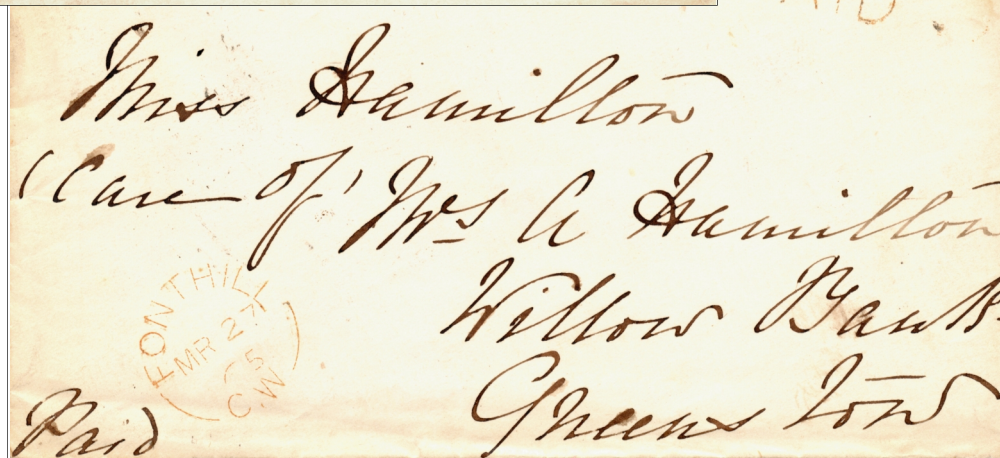 Miss Hamilton
(Care of) Mrs A Hamilton
Willow Bank
Queens Town
FONTHILL
MR 27
C.W
Paid